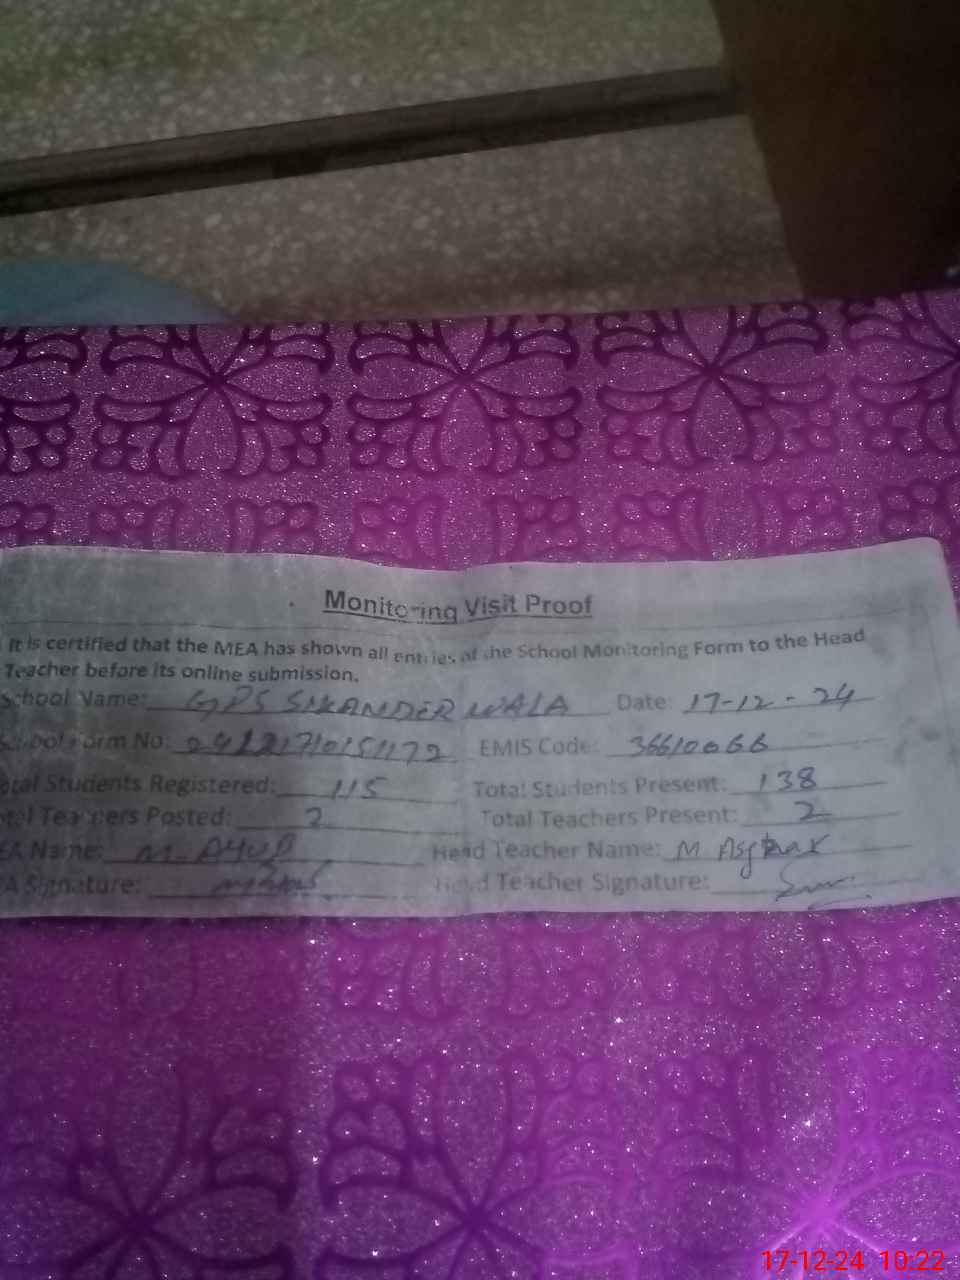 Monitoring Visit Proof
It is certified that the MEA has shown all entries of the School Monitoring Form to the Head
Teacher before its online submission.
School Name: GPS SIKANDER WALA Date: 17-12-24
School Form No: 24121710151172 EMIS Code: 36610066
otal Students Registered: 115 Total Students Present: 138
tal Teachers Posted: 2 Total Teachers Present: 2
EA Name: M-AYUB Head Teacher Name: M Asghar
A Signature: Head Teacher Signature:
17-12-24 10:22